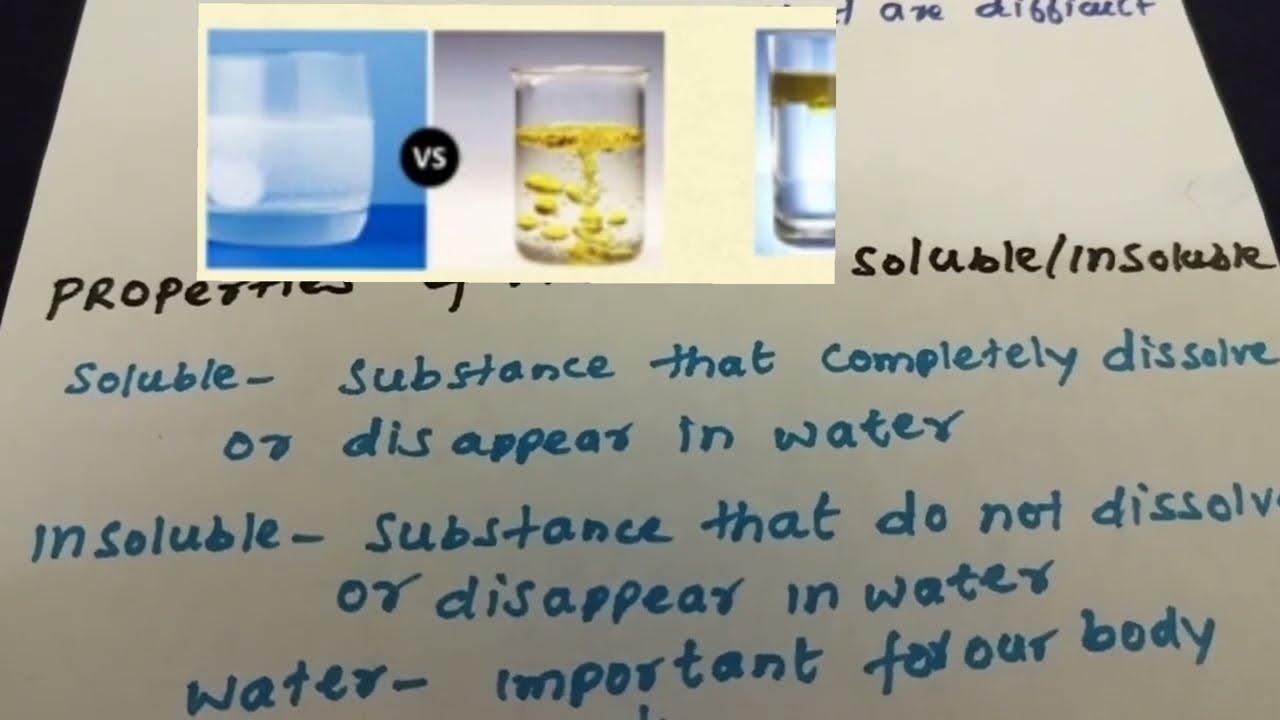 are difficult
VS
Properties of
soluble/insoluble
soluble- substance that completely dissolve
or disappear in water
insoluble- substance that do not dissolv
or disappear in water
water- important for our body